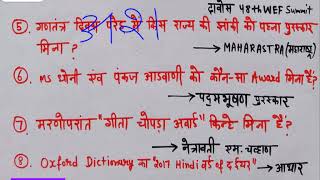 दावोस 48th WEF Summit
⑤. गणतंत्र दिवस परेड में किस राज्य की झांकी को पहला पुरस्कार
मिला ?
→ MAHARASTRA (महाराष्ट्र)
⑥. MS धोनी एवं पंकज आडवाणी को कौन-सा Award मिला है?
→ पद्मभूषण पुरस्कार
⑦ मरणोपरांत "गीता चोपड़ा अवार्ड" किन्हें मिला है?
→ नेत्रावती एम. चव्हाण
⑧. Oxford Dictionary का "2017 Hindi वर्ड ऑफ द ईयर" → आधार